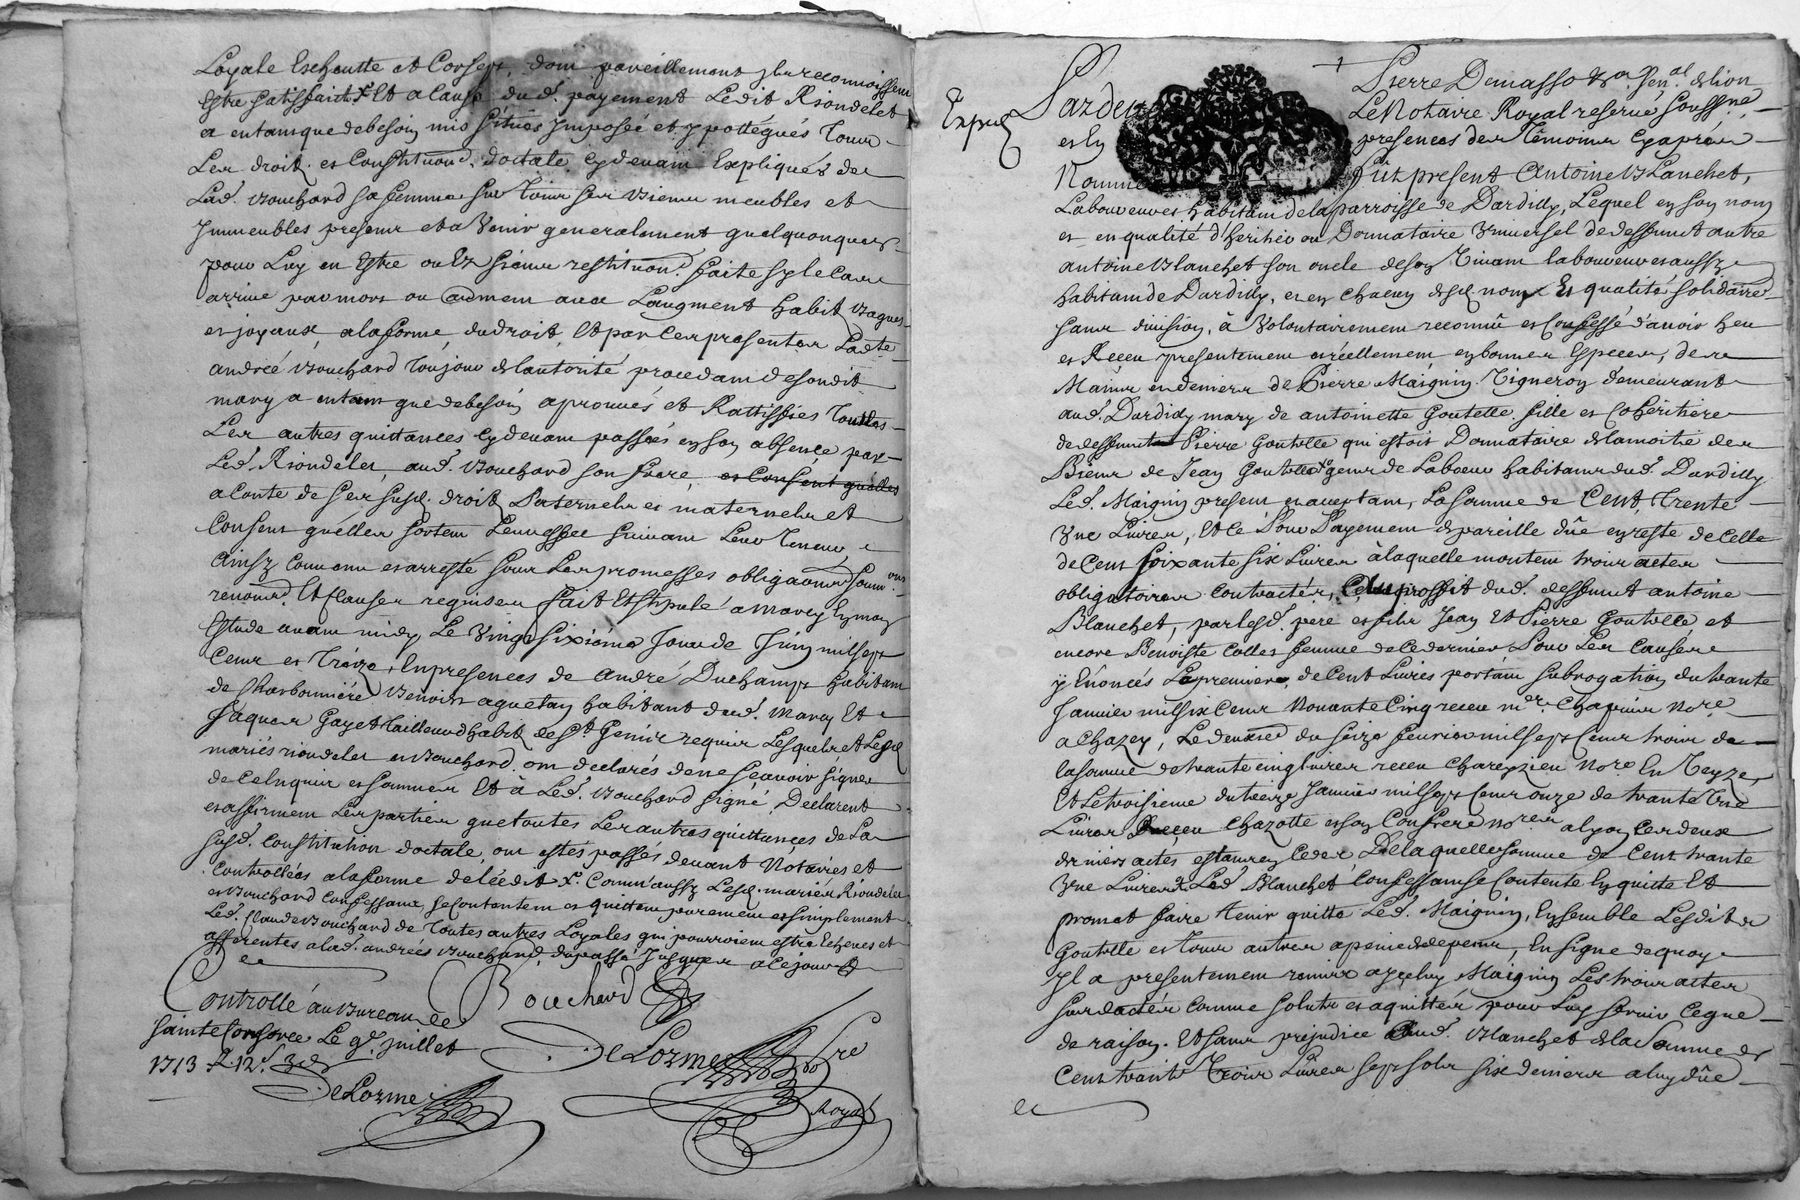 Loyale Escheutte et Corsept, dont pareillement ylz reconnoissent
Estre satisfait x. Et a cause dud. payement Ledit Riondelet
a entant que de besoin mis situés Imposée et ypottéqués Tous
Les droit et Constituon. doctale cy devant Expliqués de
Lad. Bouchard sa femme sur tous ses Biens meubles et
Immeubles presents et a Venir generalement quelquonques
pour Luy en Estre ou Ez siens restituon. faite sy le Cas
arrive par mort ou autrement avec Laugment habit bagues
et joyaux, a la forme du droit, Et par Ces presentes Ladte
andrée Bouchard Toujour de lautorité procedant de sondit
mary a entant que de besoin aprouvés et Rattiffiés Toutes
Les autres quittances cy devant passées en son absence par
Led. Riondelet, aud. Bouchard son frere, et Consent quelles
a Conte de ses susd. droit Paternels et maternels et
Consent quelles sortent Leur effect suivant Leur Teneur,
Ainsy Convenu et arresté sous Les promesses obligaons soumons
renond. Et Clauses requises fait Et stipulé a Marcy En mon
Estude avant midy Le Vingt sixieme Jour de Juin mil sept
Cent et Treize, En presences de André Duchamp habitant
de Charbonniere Benoist aguetan habitant dud. Marcy Et
Jaques Gayet tailleur d'habit de St. Genis requis Lesquels et Lesd.
mariés riondelet et Bouchard ont declarés de ne Sçavoir signer
de ce Enquis et sommés Et à Led. Bouchard signé, Declarent
et affirment Les parties que toutes Les autres quittances de La
susd. Constitution doctale, ont estés passés devant Notaires et
Controllées a la forme de lédit x. Comm'aussy Lesd. mariés Riondelet
et Bouchard Confessant, se Contentent et quittent purement et simplement
Led. Claude Bouchard de Toutes autres Loyales qui pourroient estre Echeues et
afferentes a lad. andrée Bouchard, du passé Jusques a ce jour
Bouchard
Controllé au Bureau de
Sainte Consorce Le 9e. juillet
1713 R. 12s. 3d
DeLorme
DeLorme Nore
Royal
Expdé
Pardevant Pierre Demasso &a Sen.al de Lion
Le Notaire Royal reservé soussné.
et En presences des Témoins cy aprés
Nommés Fut present Antoine Blanchet,
Laboureur et habitant de la parroisse de Dardilly, Lequel en son nom
et en qualité d'heritier ou Donnataire Vniversel de deffunct autre
antoine Blanchet son oncle de son Vivant laboureur et aussy
habitant de Dardilly, et en Chacun desd. noms Et qualités solidaires
sans division, à Volontairement reconnû et Confessé d'avoir heu
et Receu presentement et réellement en bonnes Especes, des
Mains en deniers de Pierre Maignin Vigneron demeurant
aud. Dardilly mary de antoinette Goutelle fille et Cohéritiere
de deffunct Pierre Goutelle qui estoit Donnataire de la moitié des
Biens de Jean Goutelle x gens de Labeur habitants dud. Dardilly
Led. Maignin present et acceptant, La somme de Cent, Trente
Vne Livres, Et ce Pour Payement de pareille dûe en reste de celle
de Cent soixante six Livres à laquelle montent trois actes
obligatoires Contractés, au proffit dud. deffunct antoine
Blanchet, par lesd. pere et fils Jean Et Pierre Goutelle et
encore Benoiste Collet femme de ce dernier Pour Les Causes
y Enoncés La premiere, de Cent Livres portant subrogation du trante
Janvier mil six Cent Nonante Cinq receu mr. Chapuis Nore.
a Chazey, Le deuxe. du seize fevrier mil sept Cent trois de
la somme de trante cinq livres receu Chareyzieu Nore. En Veyze,
Et Le troisieme du treze Janvier mil sept Cent onze de trante Vne
Livres Receu Chazotte et son Confrere Nores a Lyon Ces deux
derniers actes estants En Cedes Delaquelle somme de Cent trante
Vne Livres Led. Blanchet Confessant se Contente En quitte Et
promet faire tenir quitte Led. Maignin, Ensemble Lesdits
Goutelle et tous autres a peine de depens, En signe de quoy
Il a presentement remis a ycelluy Maignin Les trois actes
surdactés Comme solutz et aquittés pour Luy servir ce que
de raison. Et sans prejudice aud. Blanchet de la Somme de
Cent trante Trois Livres sept sols six deniers a luy dûe